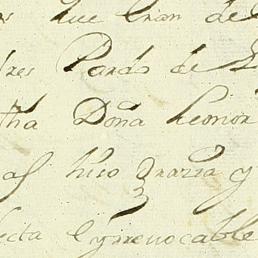 que eran de
dres Pardo de
tha Doña Leonor
as hizo grazia y
ecta e yrrevocable